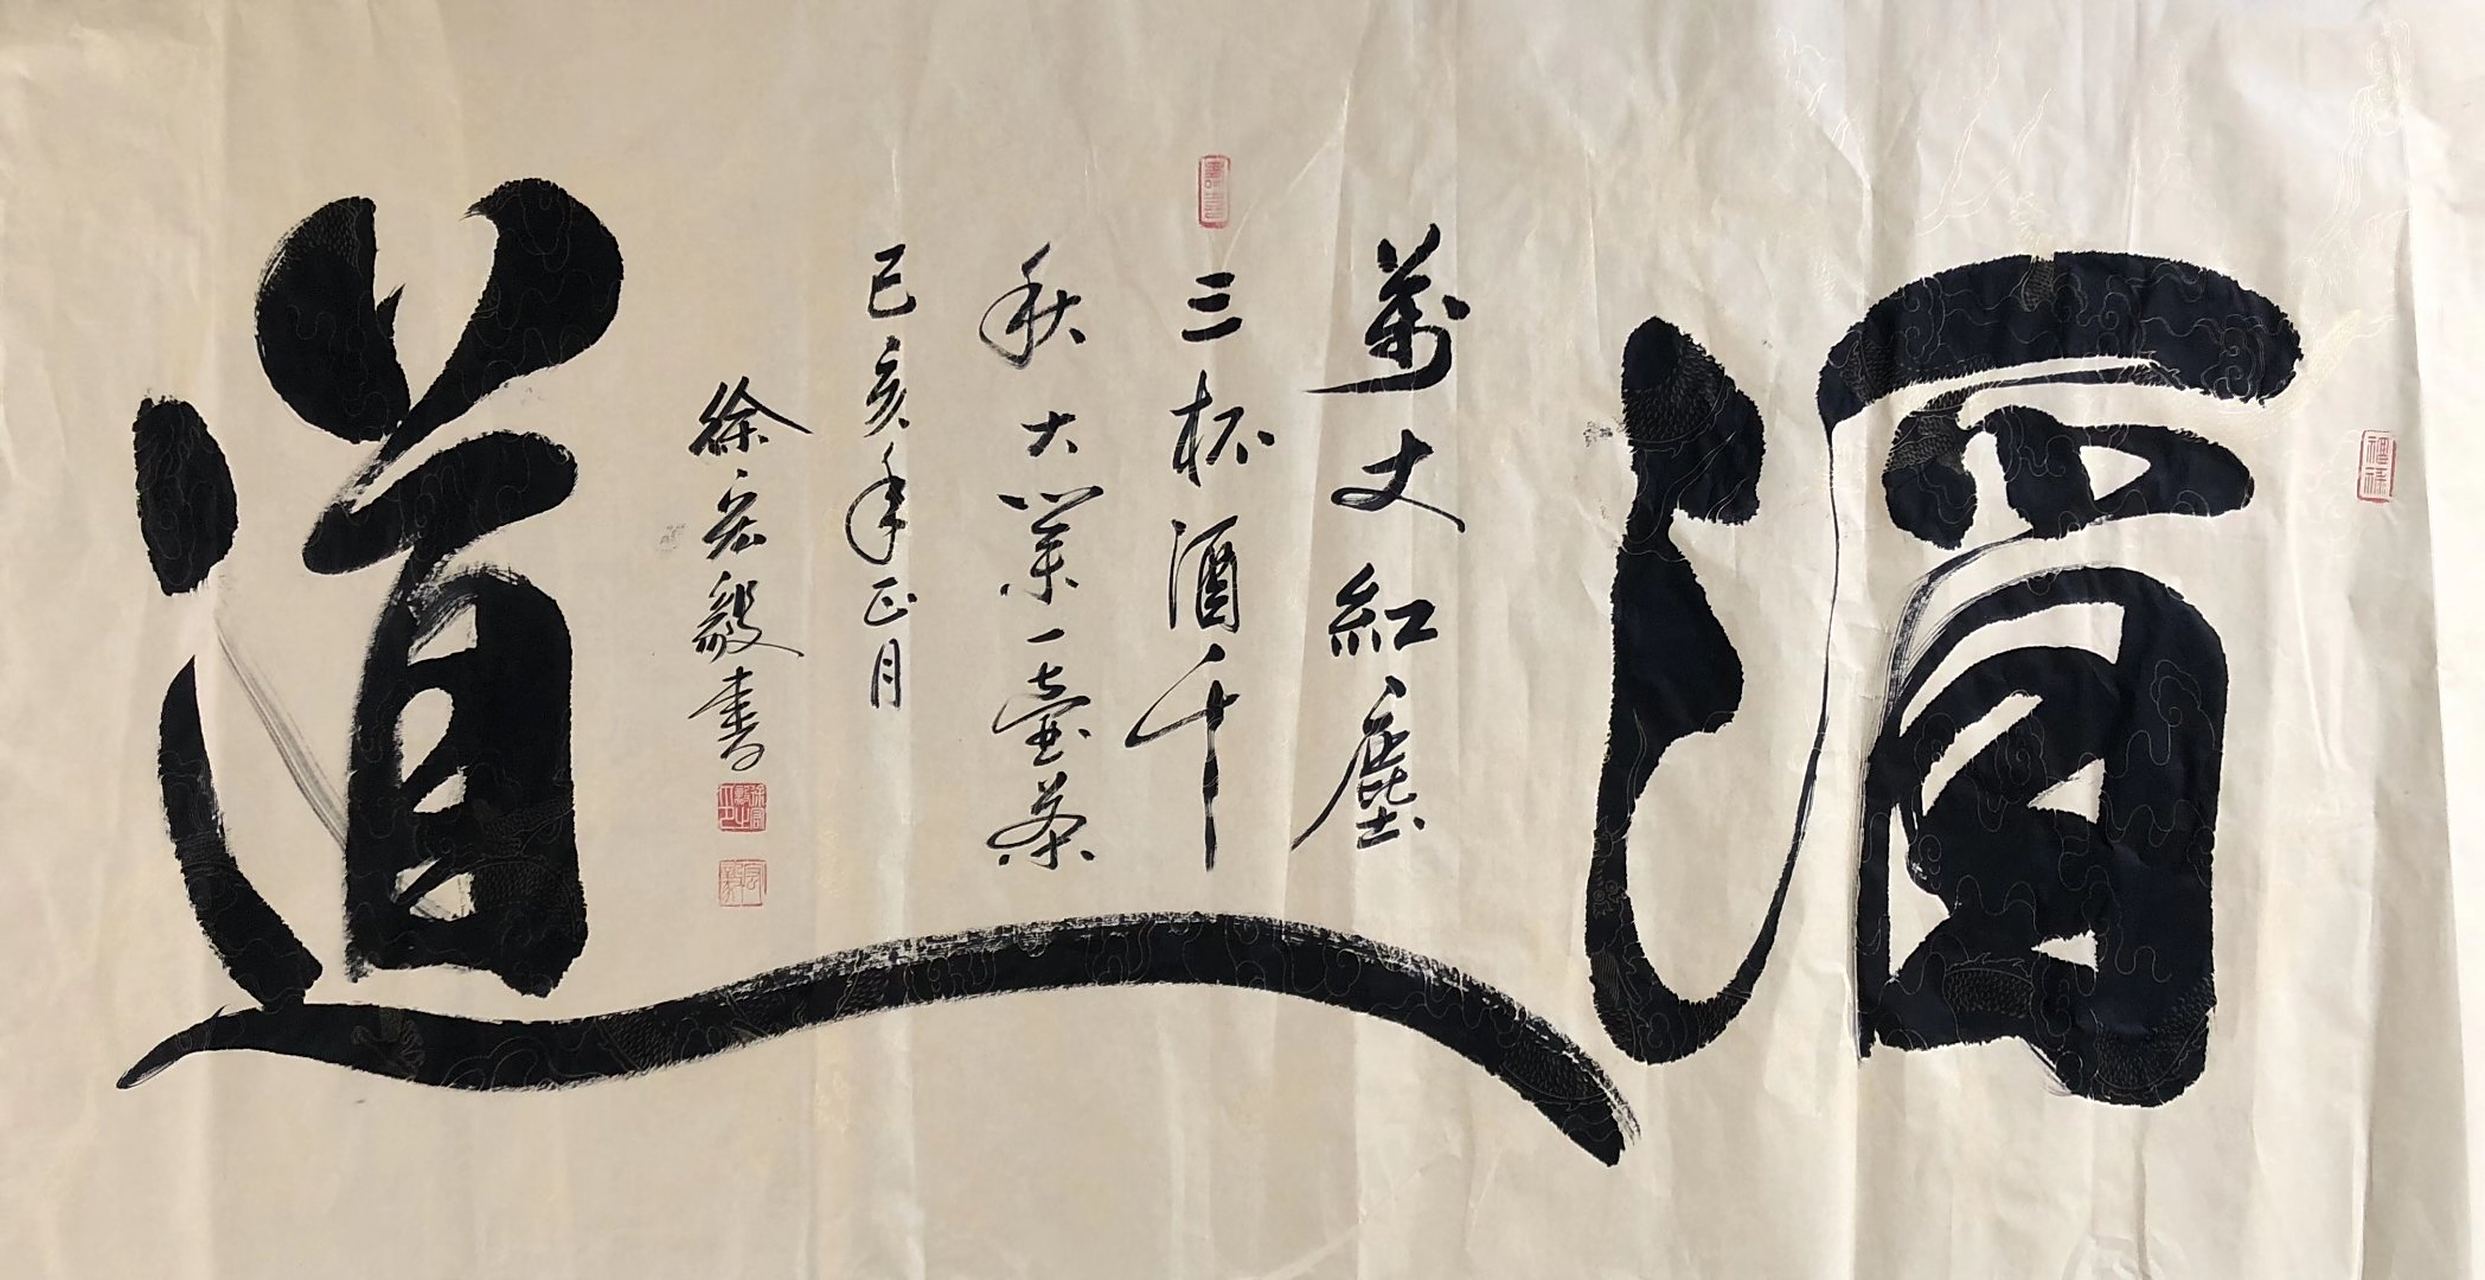 酒道
萬丈紅塵
三杯酒千
秋大業一壺茶
己亥年正月
徐宏毅書